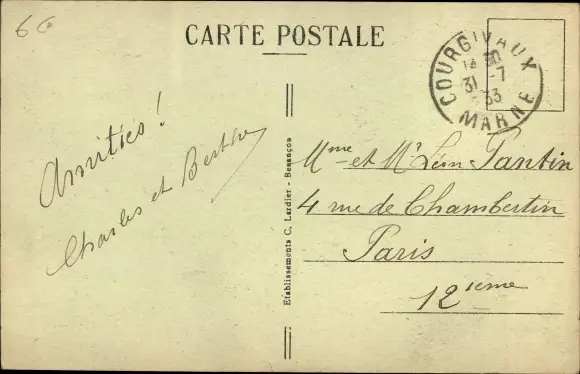 6 G
CARTE POSTALE
COURGIVAUX
12 30
31 -7
33
MARNE
Amitiés !
Charles et Berthe
Etablissements C. Lardier - Besançon
Mme et Mr Léon Pantin
4 rue de Chambertin
Paris
12ième